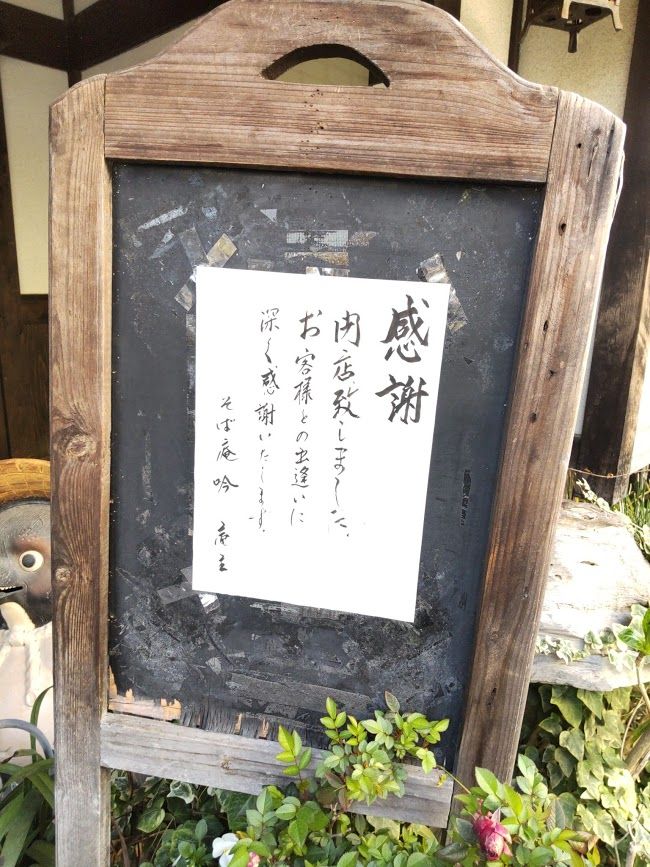 感謝
閉店致しました。
お客様との出逢いに
深く感謝いたします。
そば庵 吟 庵主